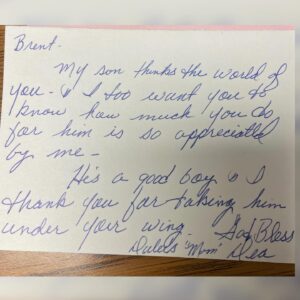 Brent.
My son thinks the world of
you - & I too want you to
know how much you do
for him is so appreciated
by me -
He's a good boy & I
thank you for taking him
under your wing. God Bless
"Mom" Dea